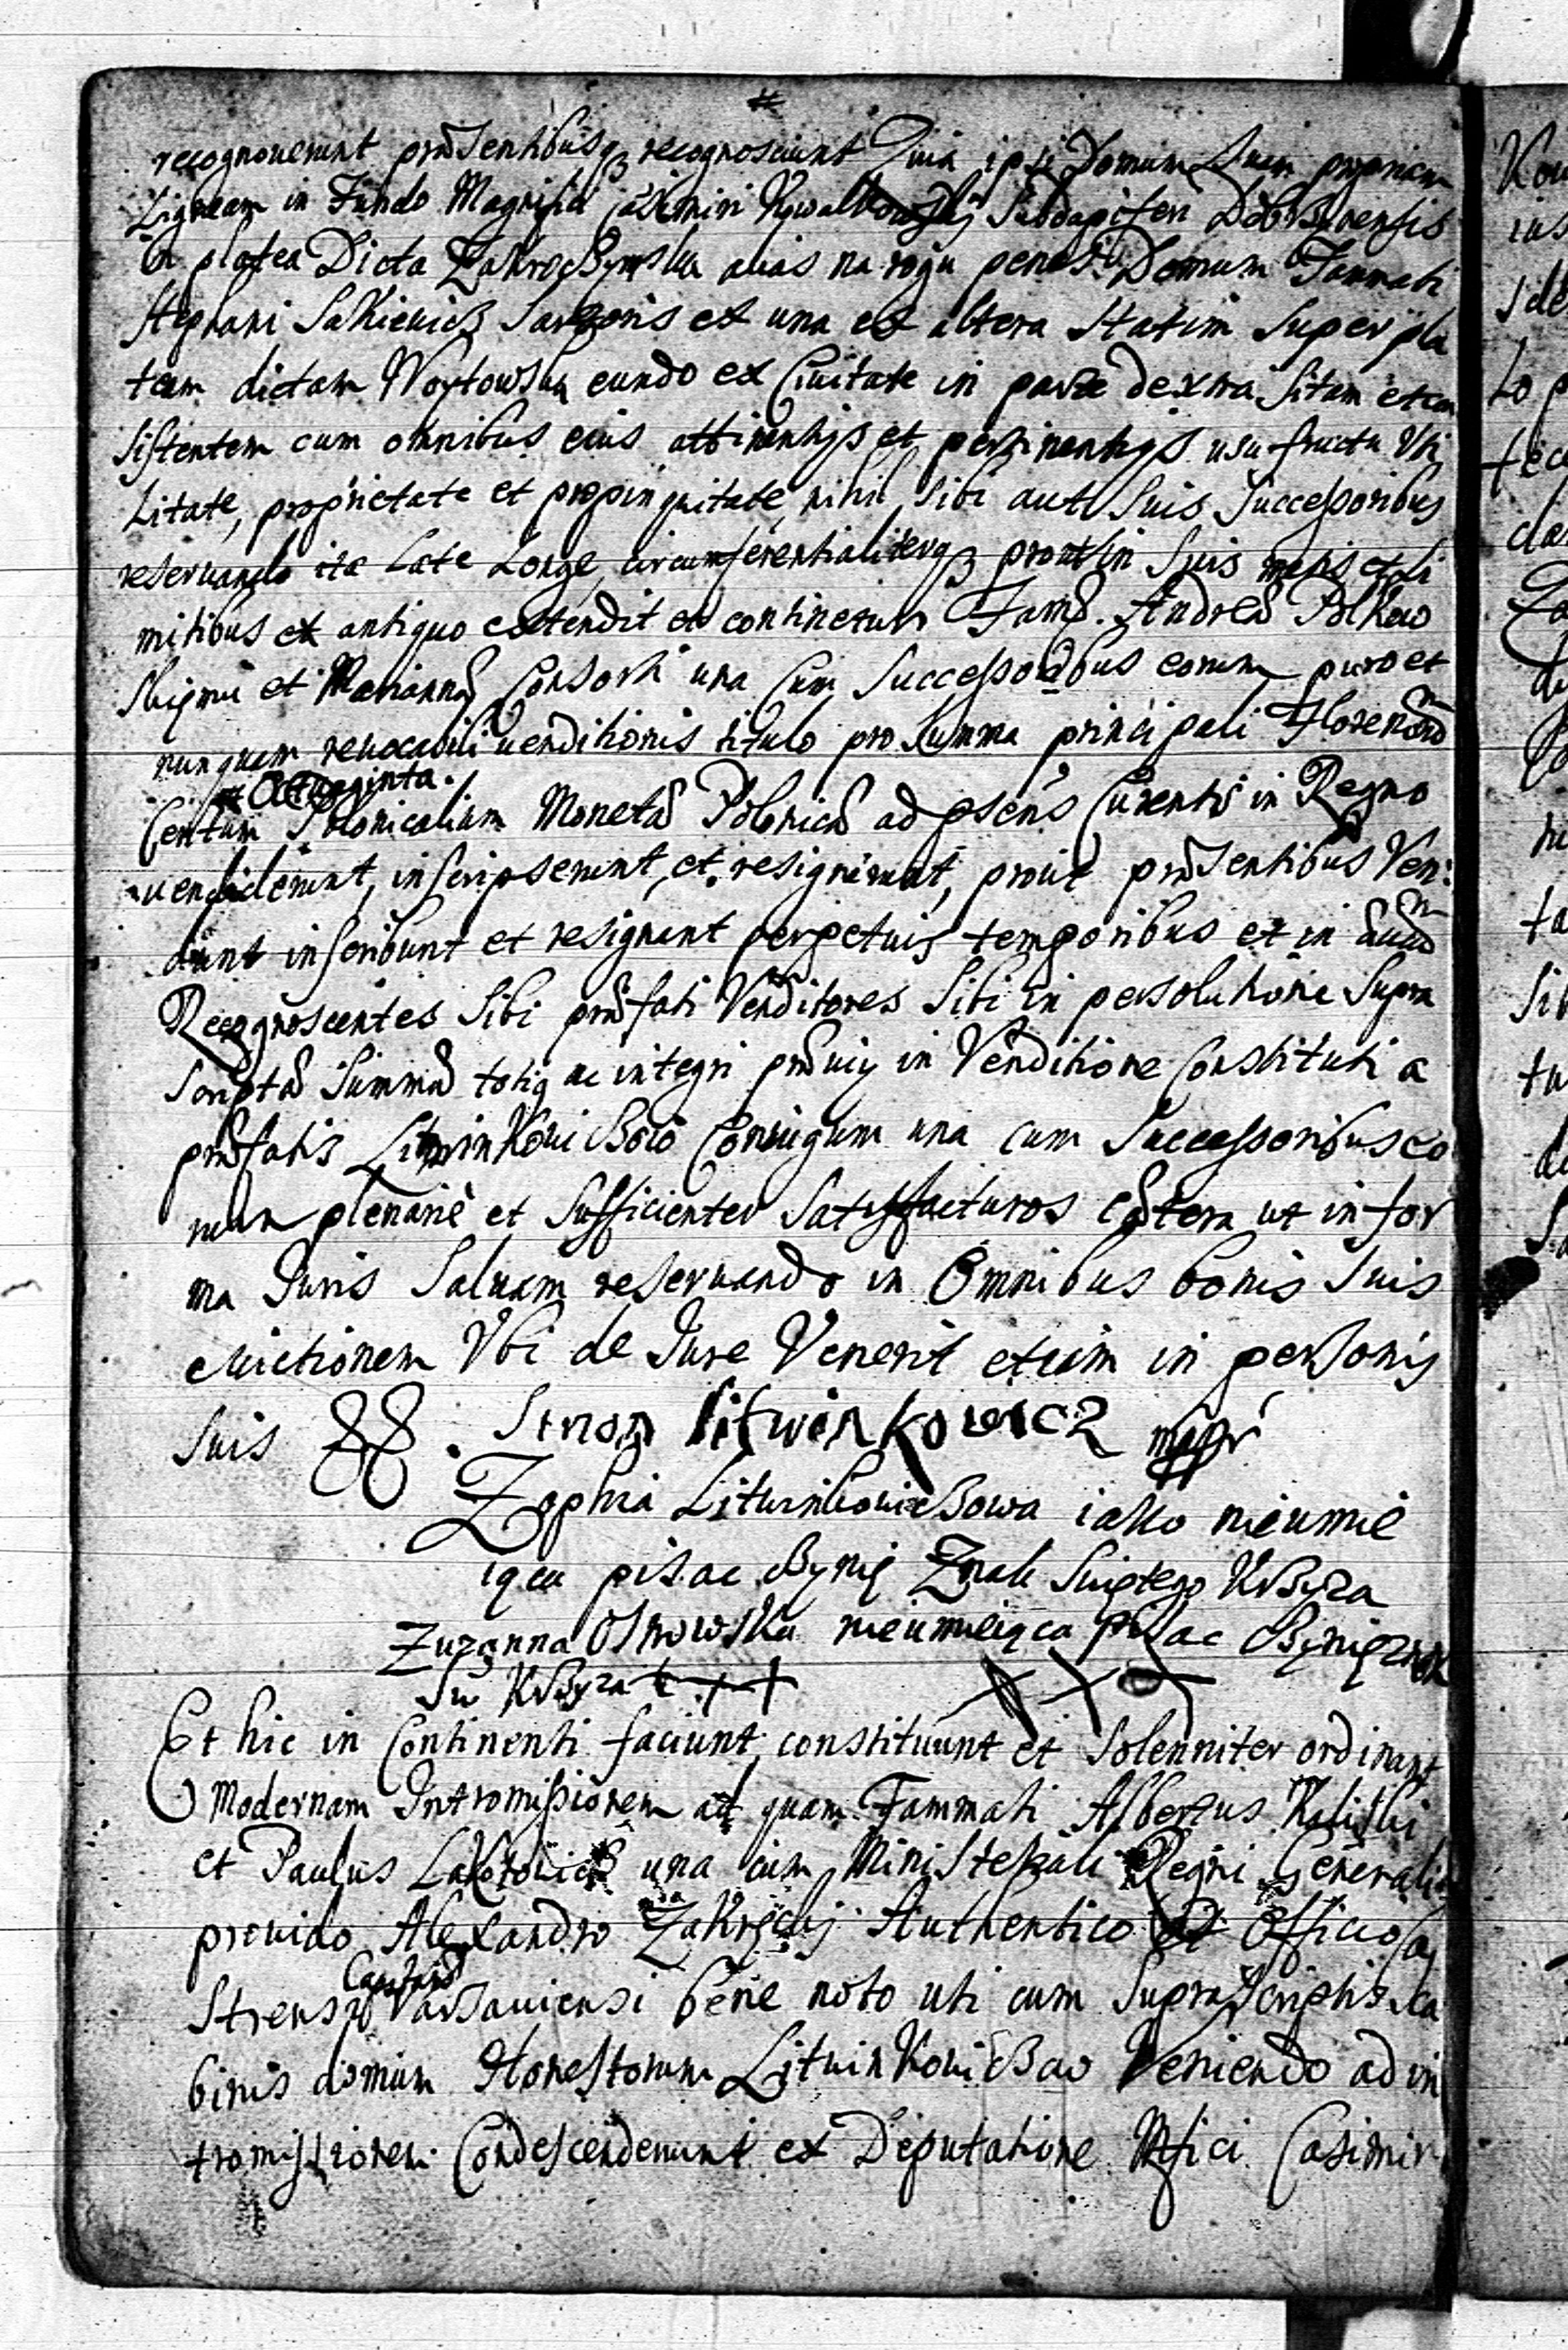 recognoverunt præsentibusq3 recognoscunt Quia ipsi Domum Suam propriam
Ligneam in Fundo Magnifici Casimiri Subdapiferi Dobrzynensis
in platea Dicta Zakroczymska alias na rogu penes Domum Fammati
Stephani Sakiewicz Sartoris ex una ex altera Statim Super pla
team dictam Woytowska eundo ex Civitate in parte dextra Sitam et con
Sistentem cum omnibus eius attinentijs et pertinentijs usu fructu Uti
Litate, proprietate et propinquitate, nihil Sibi aut Suis Successoribus
reservando ita Late Longe, circumferentialiterq3 prout in Suis metis et Li
mitibus ex antiquo extendit et continetur Fam. Andreæ Polkow
Skiemu et Mariannæ Consorti una Cum Successoribus eorum puro et
nunquam revocabili venditionis titulo pro Summa principali Florenoru
et Octuaginta.
Centum Polonicalium Monetæ Polonicæ ad psens Curentis in Regno
vendiderunt, inscripserunt, et resignarunt, prout præsentibus Ven:
dunt inscribunt et resignant perpetuis temporibus et in ævum
Recognoscentes Sibi præfati Venditores Sibi in persolutione Supra
Scriptæ Summæ totiq ac integri prævij in Venditione Constituti a
præfatis Litwinkowiczow Coniugum una cum Successoribus eo
rum plenarie et Sufficienter Satisfacturos cætera ut in for
ma Iuris Salvam reservando in Omnibus bonis Suis
evictionem Ubi de Iure Venerit etiam in personis
Suis Simon litwinkowicz mppr
Zophia Litwinkowiczowa iako nieumie
iąca pisac czynię Znak Swiętego Krzyza
Zuzanna Ostrowska nieumieiąca pisac czynię znak
Sw Krzyza + + +
Et hic in Continenti faciunt, constituunt et Solenniter ordinant
Modernam Intromissionem ad quam Fammati Albertus Kaliski
et Paulus una cum Ministeriali Regni Generali
provido Alexandro Authentico et Officio Ca
Capitan
Strensi Varsaviensi bene noto uti cum Suprascriptis Sca
binis domum Honestorum Litwinkowiczow Veniendo ad in
tromissionem Condescenderunt ex Deputatione Mfici Casimiri